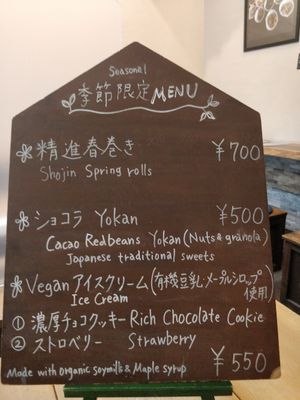 Seasonal
季節限定 MENU
精進春巻き ¥700
Shojin Spring rolls
ショコラ Yokan ¥500
Cacao Redbeans Yokan (Nuts & granola)
Japanese traditional sweets
Vegan アイスクリーム (有機豆乳・メープルシロップ
Ice Cream 使用)
① 濃厚チョコクッキー Rich Chocolate Cookie
② ストロベリー Strawberry
Made with organic soymilk & Maple syrup ¥550